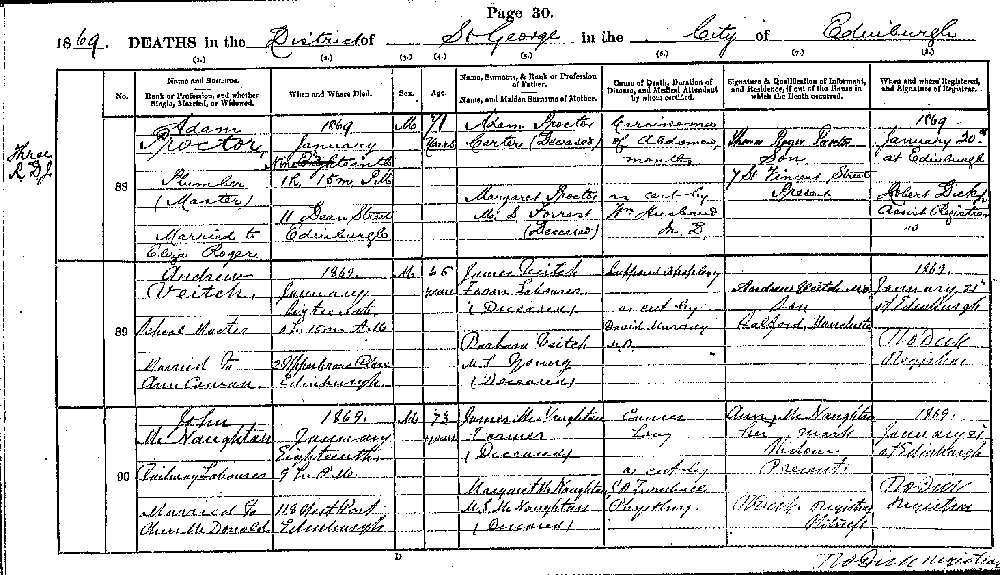 Page 30.
1869. DEATHS in the District of St George in the City of Edinburgh
(1.) (2.) (3.) (4.) (5.) (6.) (7.) (8.)
No.
Name and Surname.
Rank or Profession, and whether Single, Married, or Widowed.
When and Where Died.
Sex.
Age.
Name, Surname, & Rank or Profession of Father.
Name, and Maiden Surname of Mother.
Cause of Death, Duration of Disease, and Medical Attendant by whom certified.
Signature & Qualification of Informant, and Residence, if out of the House in which the Death occurred.
When and where Registered, and Signature of Registrar.
Three
88
Adam
Proctor,
Plumber
(Master)
Married to
Eliza Roger
1869
January
Eighteenth
1h. 15m P.M.
11 Dean Street
Edinburgh
M
71
Years
Adam Proctor
Carter (Deceased)
Margaret Proctor
M. S. Forrest
(Deceased)
Carcinoma
of Abdomen,
months
as cert by
Wm Husband
M.D.
Thomas Roger Proctor
Son
7 St Vincent Street
Present
1869
January 20th
at Edinburgh
Robert Dick
Assist Registrar
89
Andrew
Veitch,
School Master
Married to
Ann Cowan
1869.
January
Eighteenth
15m A.M.
Edinburgh
M.
65
years
James Veitch
Farm Labourer
(Deceased)
Barbara Veitch
M.S. Young
(Deceased)
as cert by
David Murray
M.D.
Andrew Veitch
Son
Salford, Manchester
1869.
January 21st
at Edinburgh
Registrar
90
John
McNaughton
Railway Labourer
Married to
Ann McDonald
1869.
January
Eighteenth
9 h. P.M.
118 West Port
Edinburgh
M.
73
years
James McNaughton
Farmer
(Deceased)
Margaret McNaughton
M.S. McNaughton
(Deceased)
Cancer
Lung
as cert by
Ann McNaughton
her mark
Widow
Present
Registrar
Witness
1869.
January 21
at Edinburgh
Registrar
D
Registrar